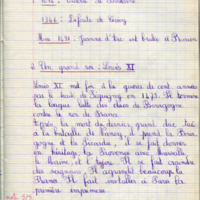 1346 : Défaite de Crécy
Mai 1431 : Jeanne d'Arc est brûlée à Rouen
2 Un grand roi : Louis XI
Louis XI met fin à la guerre de cent années
par le traité de Picquigny en 1475. Il termine
la longue lutte des ducs de Bourgogne
contre les rois de France.
Après la mort du dernier grand duc tué
à la bataille de Nancy, il prend la Bourgogne
et la Picardie, il se fait donner
en héritage la Provence avec Marseille
le Maine, et l'Anjou. Il se fait craindre
des seigneurs. Il agrandit beaucoup la
France. Il fait installer à Paris la
première imprimerie.